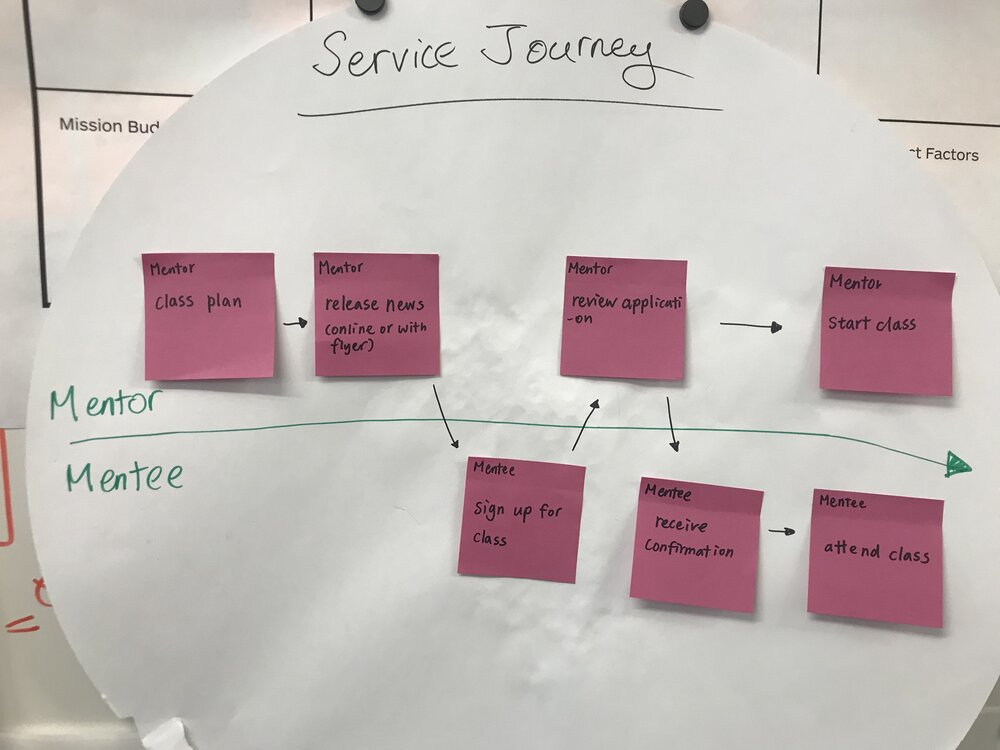 Service Journey
Mission Bud
t Factors
Mentor
class plan
Mentor
release news
(online or with
flyer)
Mentor
review applicati
-on
Mentor
start class
Mentor
Mentee
Mentee
sign up for
class
Mentee
receive
confirmation
Mentee
attend class